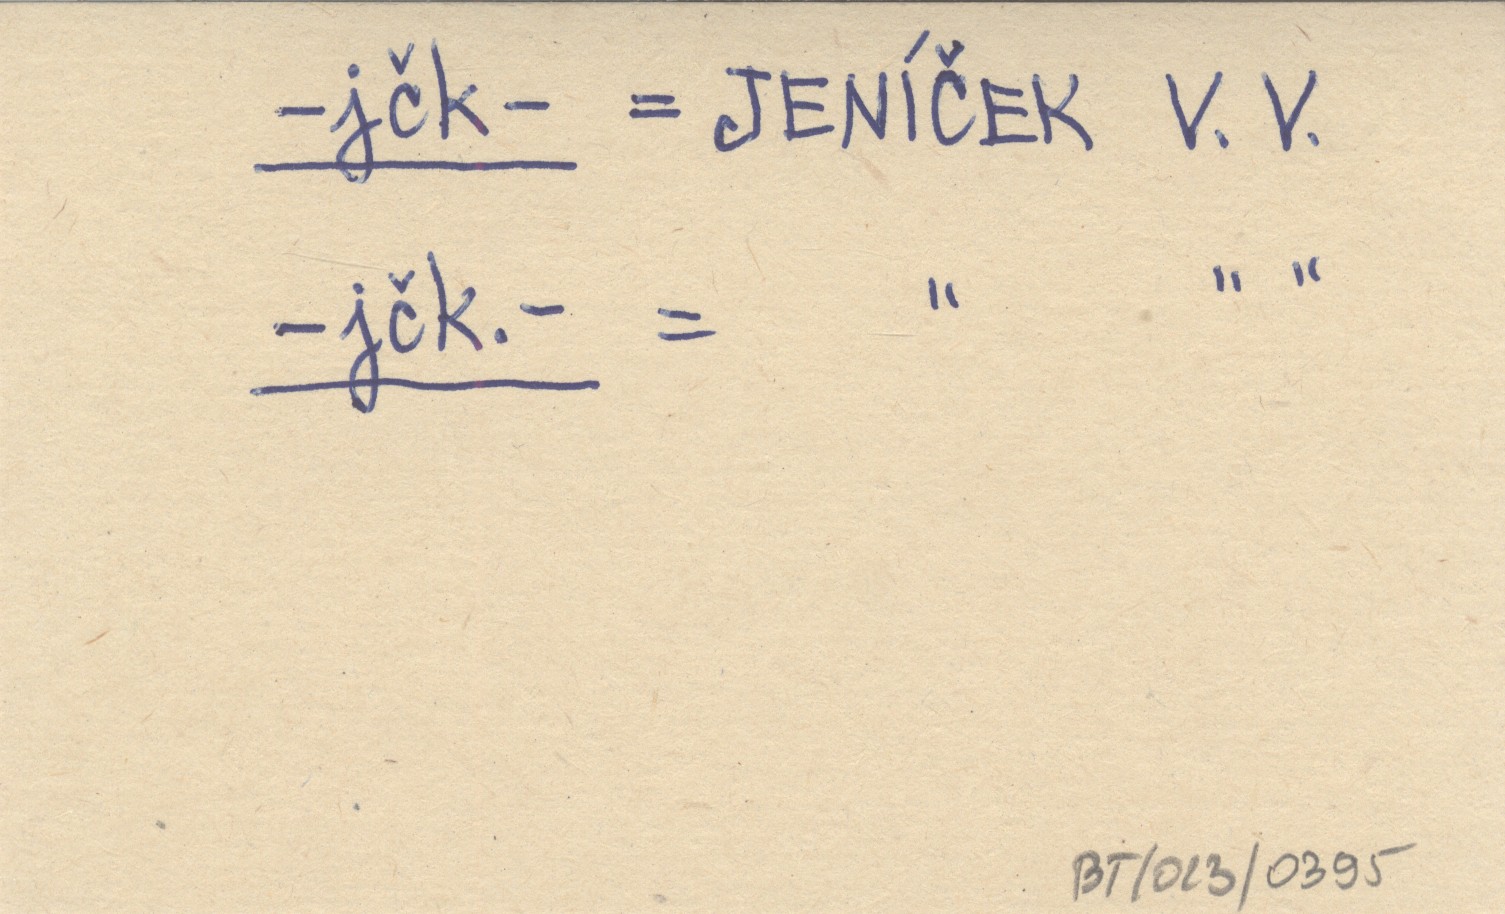 -jčk- = JENÍČEK V. V.
-jčk.- = " " "
BT/013/0395